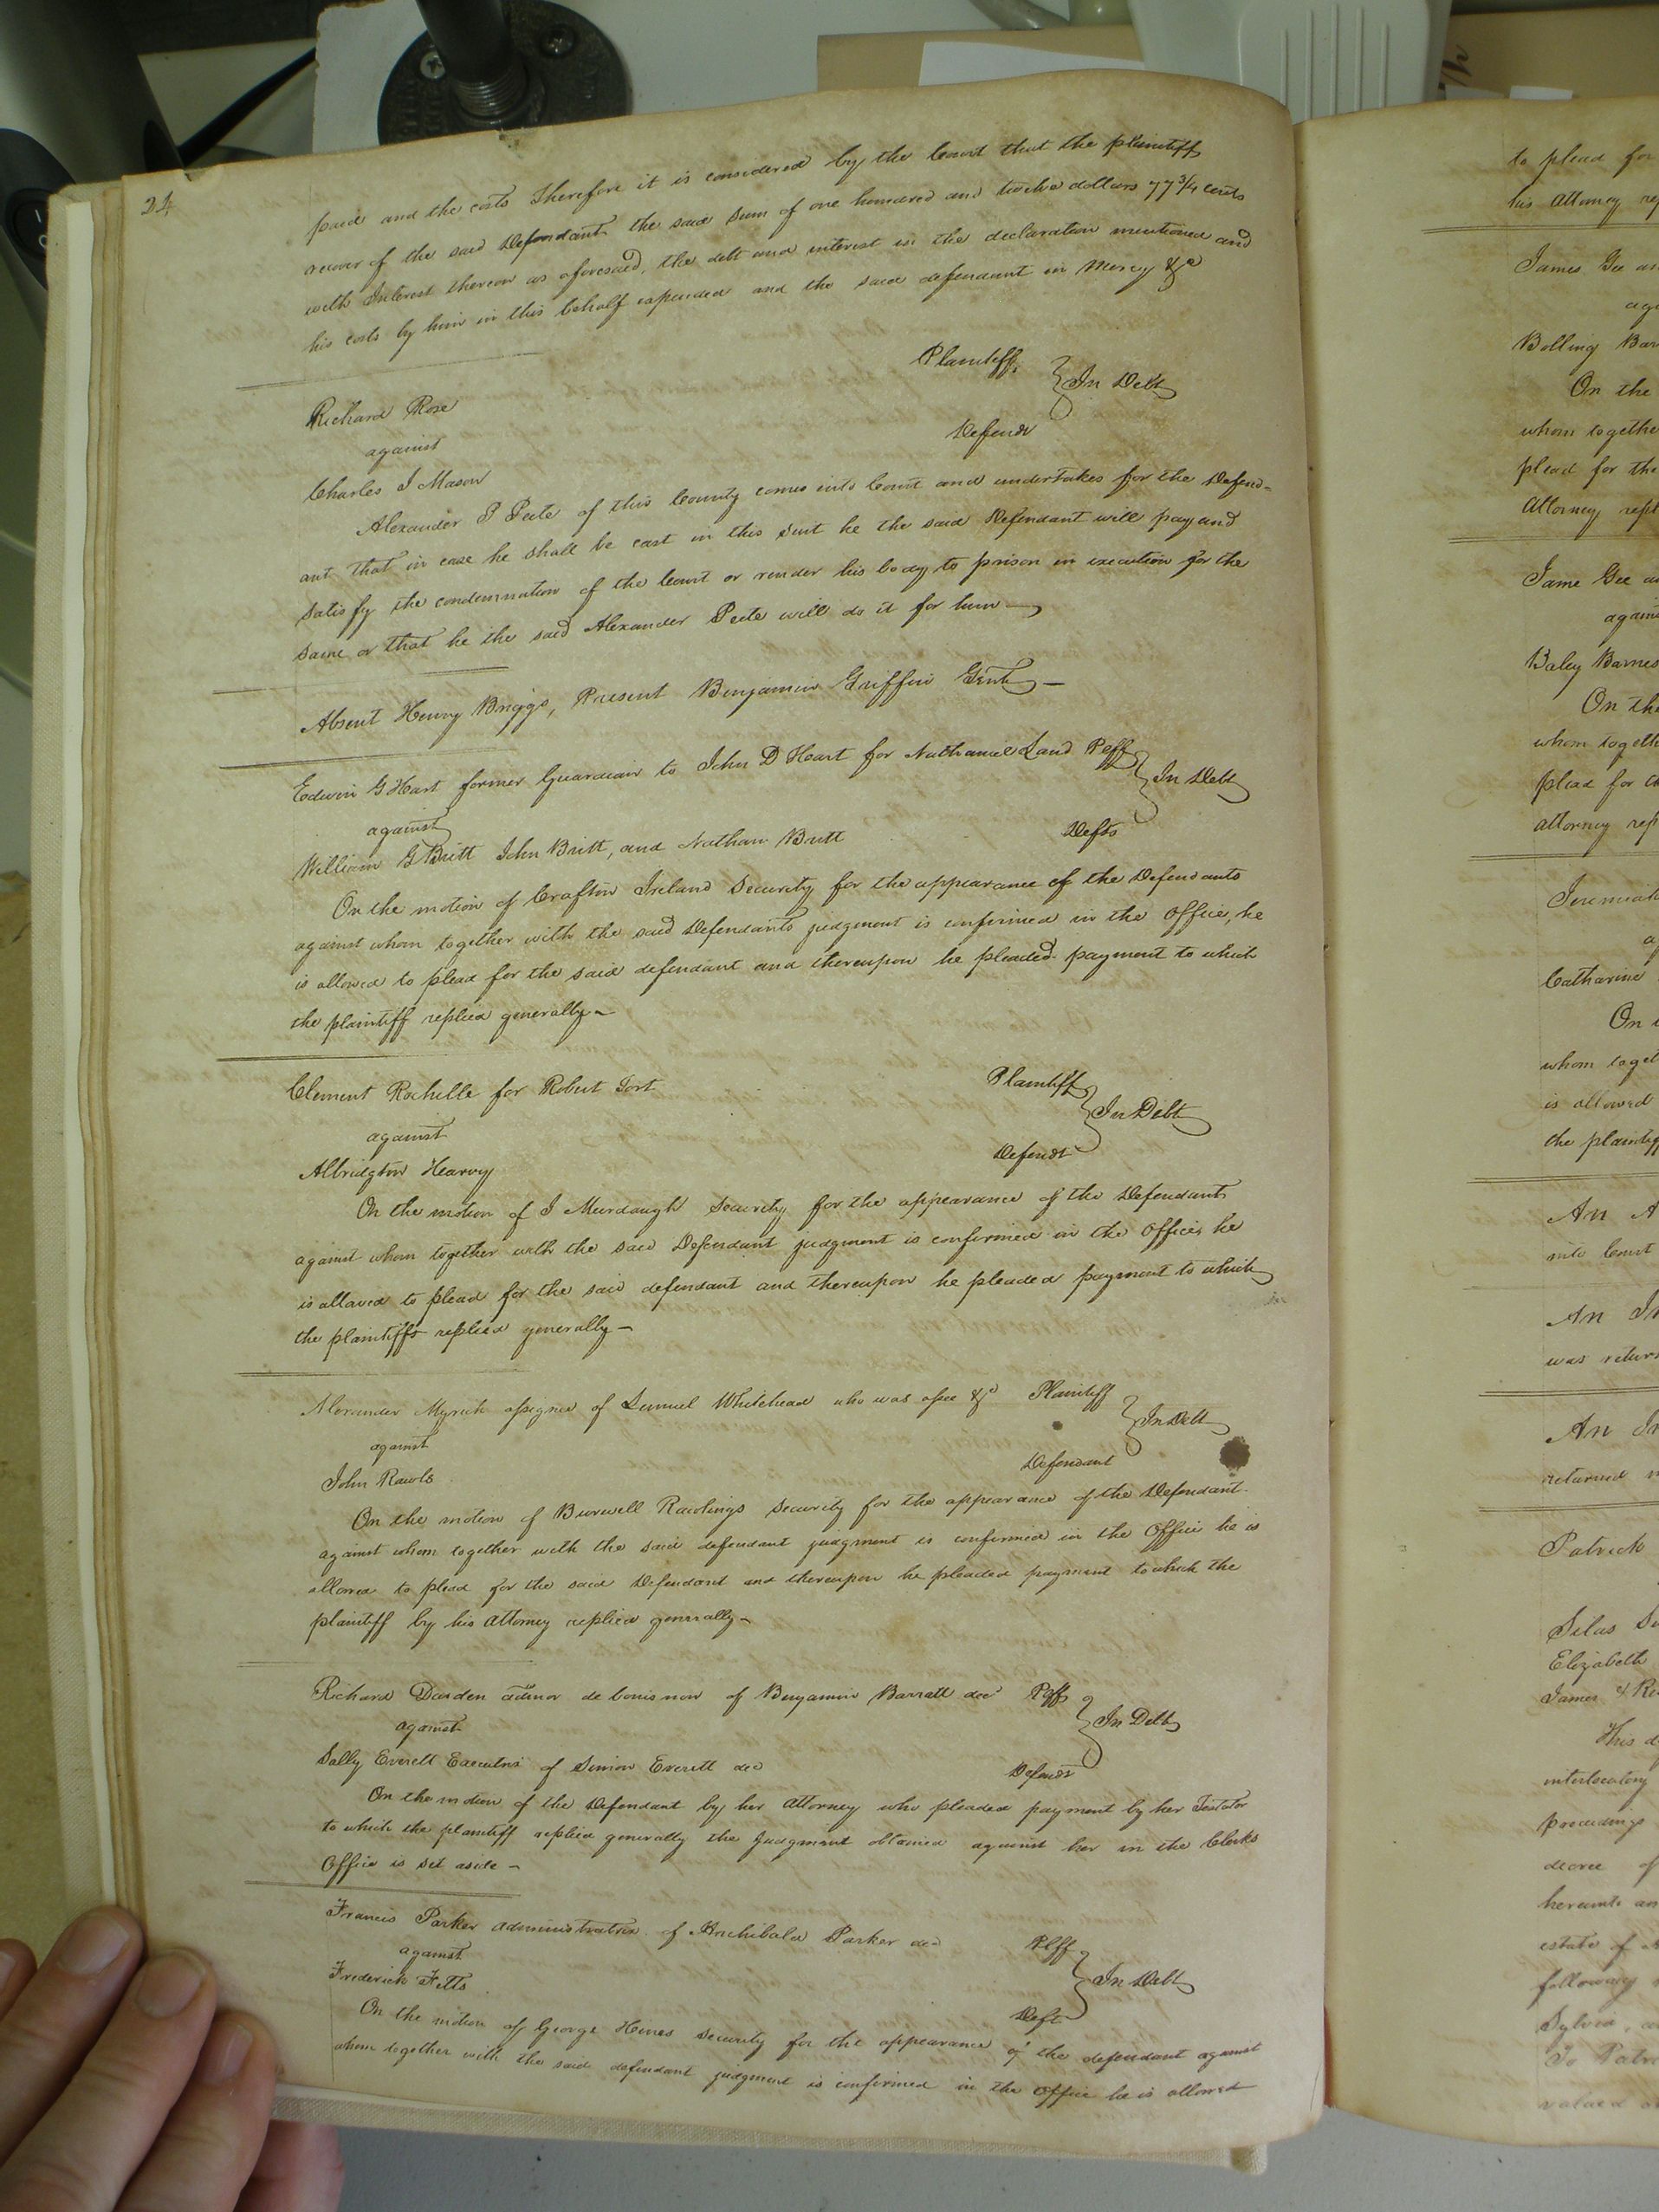 24
paid and the costs Therefore it is considered by the Court that the plaintiff
recover of the said Defendant the said sum of one hundred and twelve dollars 77 3/4 cents
with Interest thereon as aforesaid, the debt and interest in the declaration mentioned and
his costs by him in this behalf expended and the said defendant in Mercy &c
Richard Rose Plaintiff
against In Debt
Charles J Mason Defendt
Alexander P Peete of this County comes into Court and undertakes for the Defend-
ant that in case he shall be cast in this suit he the said Defendant will pay and
satisfy the condemnation of the Court or render his body to prison in execution for the
same or that he the said Alexander Peete will do it for him
Absent Henry Briggs, Present Benjamin Griffin Gent
Edwin G Hart former Guardian to John D Heart for Nathaniel Land Peff
against In Debt
William G Britt John Britt, and Nathan Britt Defts
On the motion of Crafton Ireland Security for the appearance of the Defendants
against whom together with the said Defendants judgment is confirmed in the Office, he
is allowed to plead for the said defendant and thereupon he pleaded payment to which
the plaintiff replied generally
Clement Rochelle for Robert Fort Plaintiff
against In Debt
Albridgton Hearvy Defendt
On the motion of J Murdaugh Security for the appearance of the Defendant
against whom together with the said Defendant judgment is confirmed in the Office, he
is allowed to plead for the said defendant and thereupon he pleaded payment to which
the plaintiffs replied generally
Alexander Myrick assignee of Lemuel Whitehead who was assee &c Plaintiff
against In Debt
John Rawls Defendant
On the motion of Burwell Rawlings Security for the appearance of the Defendant
against whom together with the said defendant judgment is confirmed in the Office he is
allowed to plead for the said Defendant and thereupon he pleaded payment to which the
plaintiff by his attorney replied generally
Richard Darden admor de bonis non of Benjamin Barratt decd Peff
against In Debt
Sally Everett Executrix of Simon Everett decd Defendt
On the motion of the Defendant by her Attorney who pleaded payment by her Testator
to which the plaintiff replied generally the Judgment obtained against her in the Clerks
Office is set aside
Francis Parker administratrix of Archibald Parker decd Plff
against In Debt
Frederick Fitts Deft
On the motion of George Hines security for the appearance of the defendant against
whom together with the said defendant judgment is confirmed in the Office he is allowed
to plead for
his Attorney
James Gee
Bolling
On the
whom
plead for the
Attorney
Jame Gee
Baley Barnes
On the
whom
plead for
attorney
Catharine
On
whom
is allowed
the
An
into Court
An
was
An
returned
Patrick
Silas
Elizabeth
James
This
proceedings
decree of
estate of
following
Sylvia
To
valued